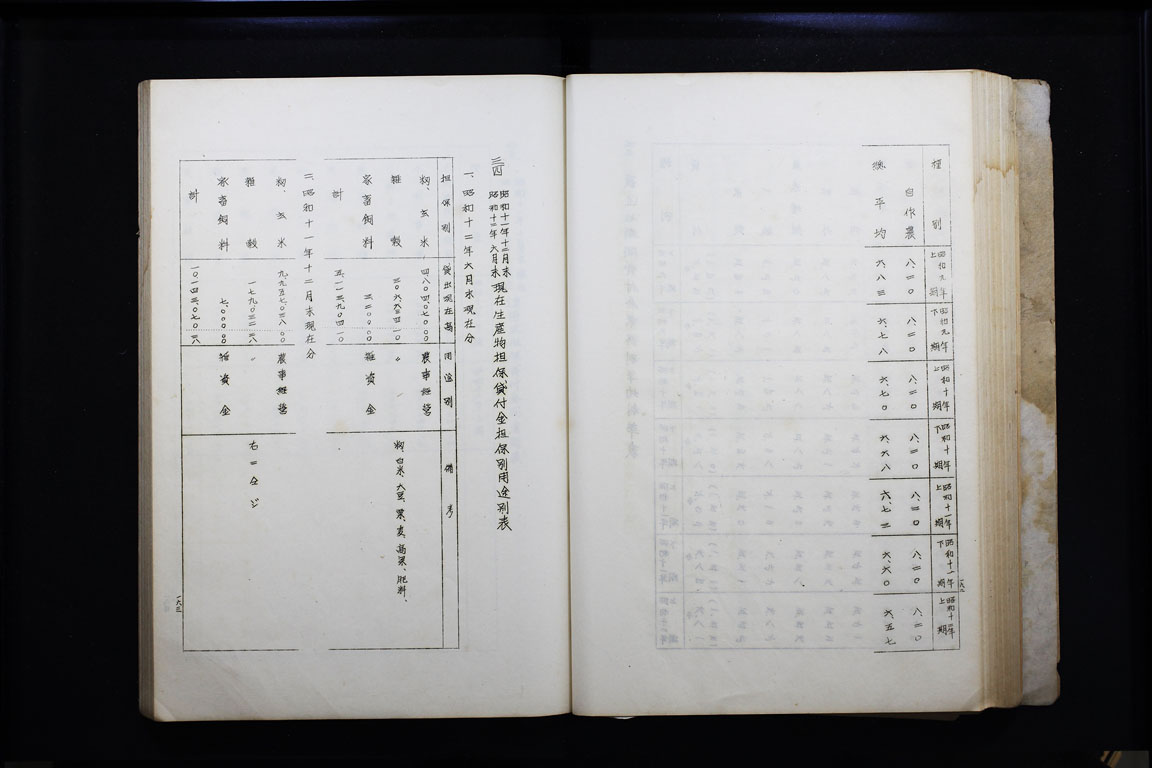 種別
昭和九年上期
昭和九年下期
昭和十年上期
昭和十年下期
昭和十一年上期
昭和十一年下期
昭和十二年上期
自作農 八、二〇 八、二〇 八、二〇 八、二〇 八、二〇 八、二〇 八、二〇
總平均 六、八三 六、七八 六、七〇 六、六八 六、七三 六、六〇 六、五七
一九二
三四 昭和十一年十二月末
昭和十二年六月末 現在生産物担保貸付金担保別用途別表
一、昭和十二年六月末現在分
担保別 貸出現在高 用途別 備考
籾、玄米 四八〇四〇七〇〇〇 農事経営
雑穀 三〇六六三四一〇 〃 籾、白米、大豆、粟、麦、高粱、肥料、
家畜飼料 三二〇〇〇〇 雑資金
計 五一一三九〇四一〇
二、昭和十一年十二月末現在分
籾、玄米 九九五七〇三八〇〇 農事経営
雑穀 一七九〇三二三八 〃 右ニ仝ジ
家畜飼料 七〇〇〇〇〇 雑資金
計 一〇一四三〇七〇三八
一九三